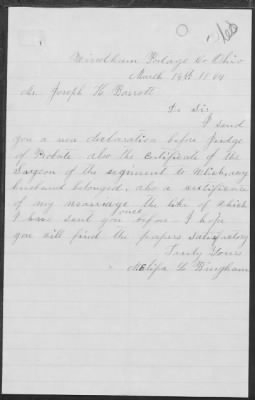 Windham Portage Co Ohio
March 14th 1864
Mr. Joseph H. Barrett
Dr Sir
I send
you a new declaration before Judge
of Probate also the Certificate of the
Surgeon of the regiment to which my
husband belonged, also a certificate
of my marriage the like of which
I have sent you once before - I hope
you will find the papers satisfactory
Truly Yours
Bingham